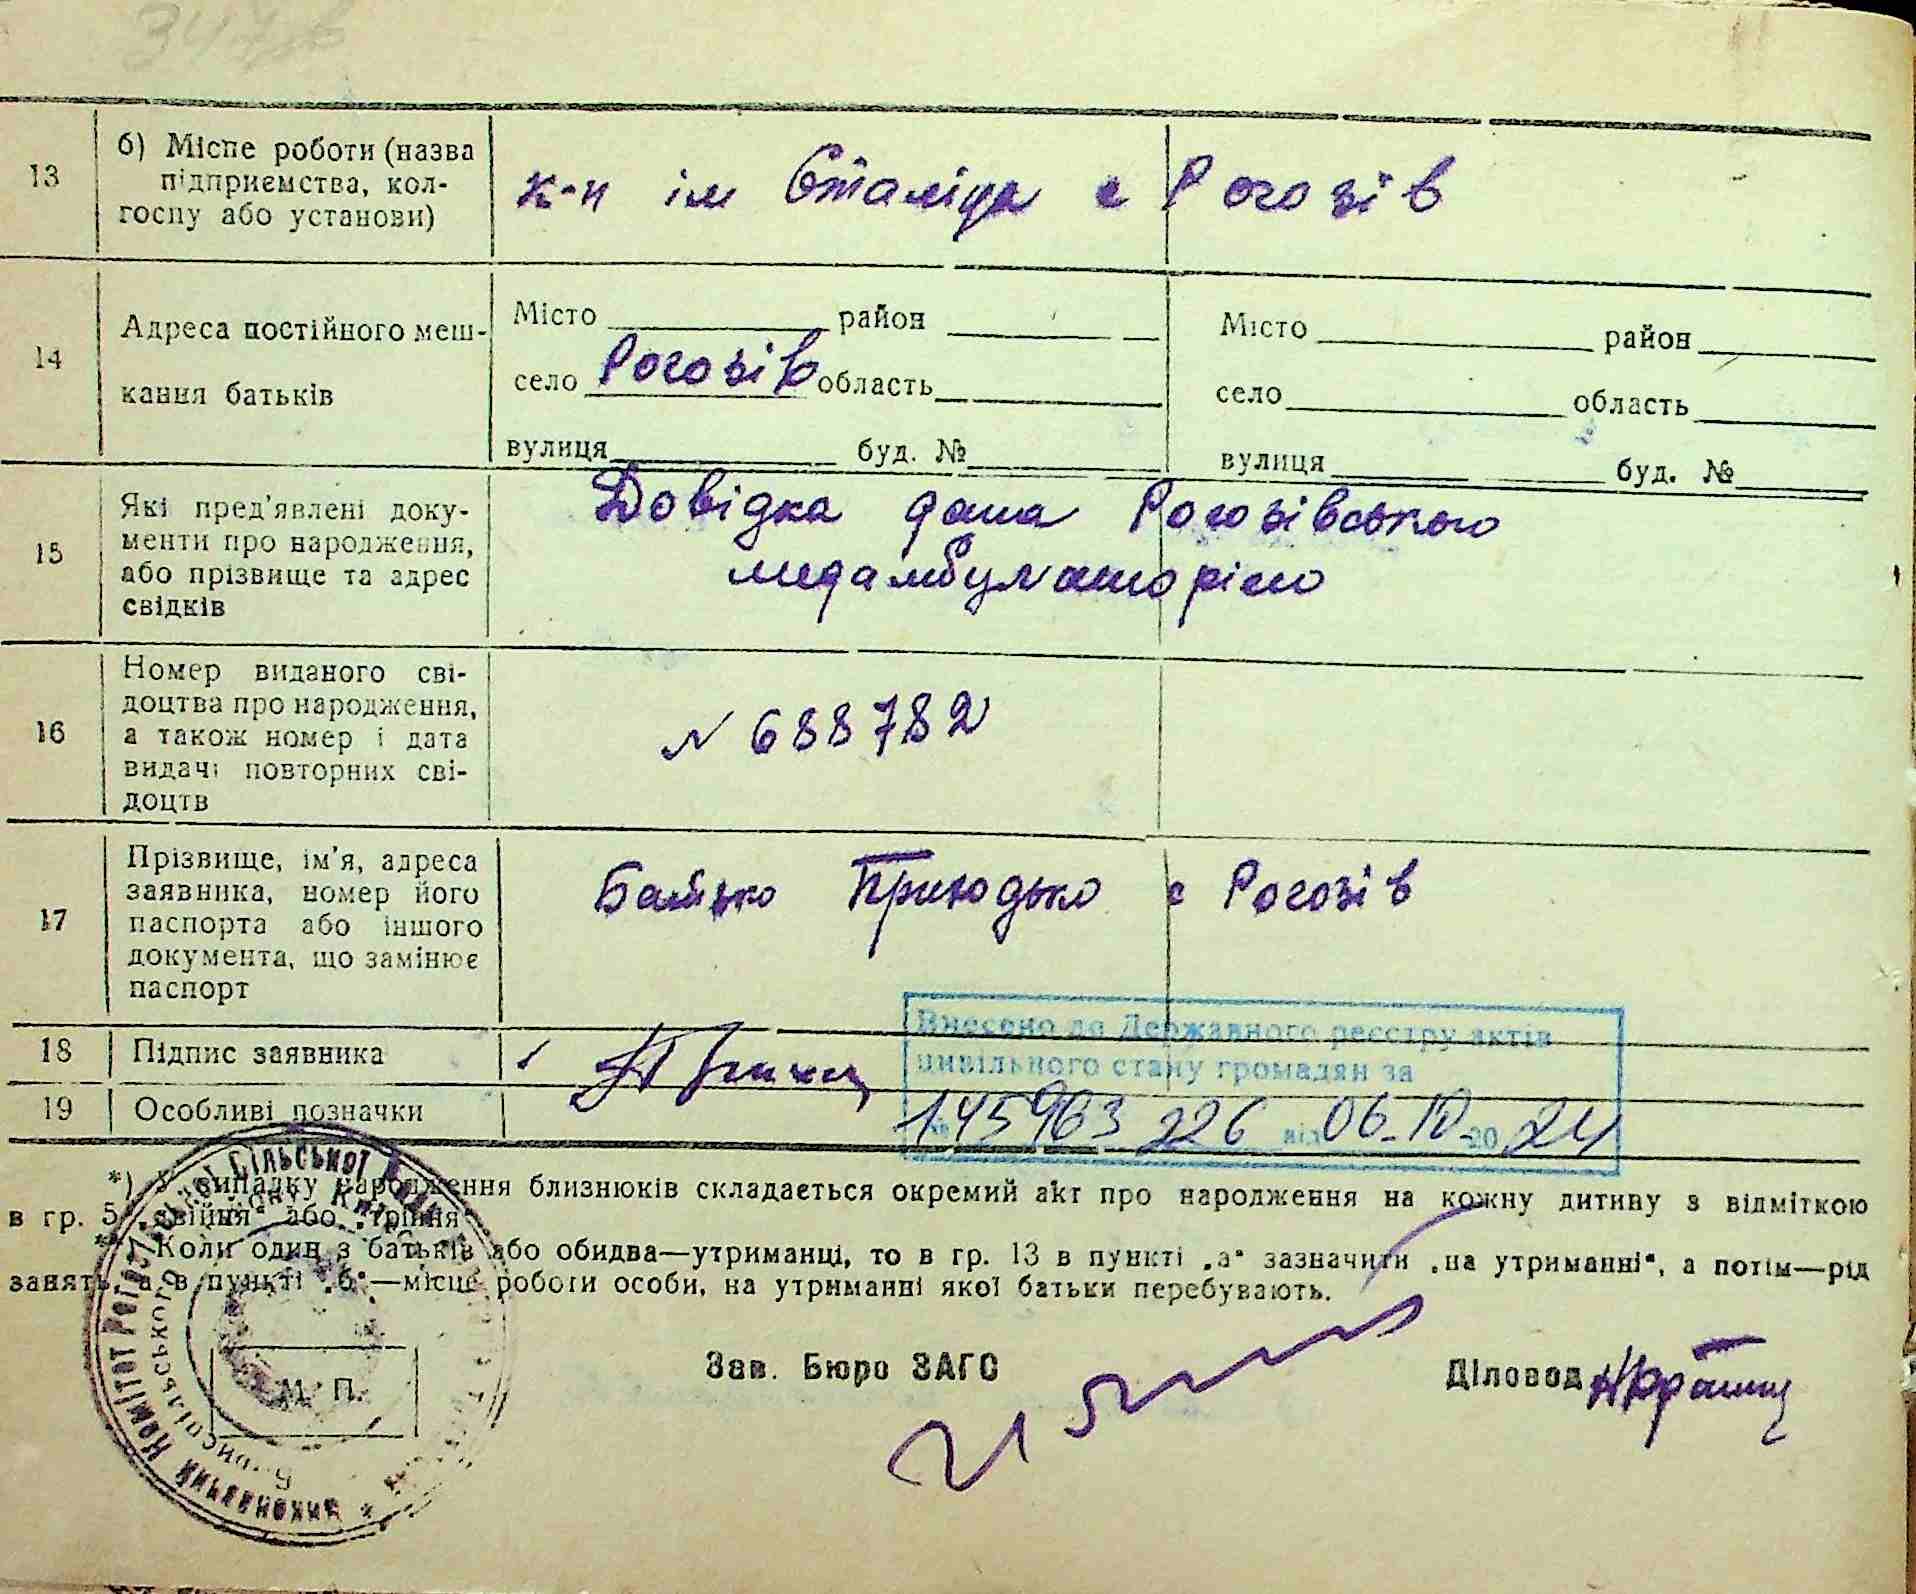 347
13
б) Місце роботи (назва
підприємства, кол-
госпу або установи)
к-п ім Сталіна с Рогозів
14
Адреса постійного меш-
кання батьків
Місто район
село Рогозів область
вулиця буд. №
Місто район
село область
вулиця буд. №
15
Які пред'явлені доку-
менти про народження,
або прізвище та адрес
свідків
Довідка дана Рогозівською
медамбулаторією
16
Номер виданого сві-
доцтва про народження,
а також номер і дата
видачі повторних сві-
доцтв
№ 688782
17
Прізвище, ім'я, адреса
заявника, номер його
паспорта або іншого
документа, що замінює
паспорт
Батько Приходько с Рогозів
18
Підпис заявника
19
Особливі позначки
Внесено до Державного реєстру актів
цивільного стану громадян за
№ 145963226 від 06.10 2024
*) У випадку народження близнюків складається окремий акт про народження на кожну дитину з відміткою
в гр. 5 „двійня“ або „трійня“
Коли один з батьків або обидва—утриманці, то в гр. 13 в пункті „а“ зазначити „на утриманні“, а потім—рід
занять, а в пункті „б“—місце роботи особи, на утриманні якої батьки перебувають.
Зав. Бюро ЗАГС
Діловод
М. П.
Виконавчий Комітет Рогозівської сільської Ради
Бориспільського району Київської